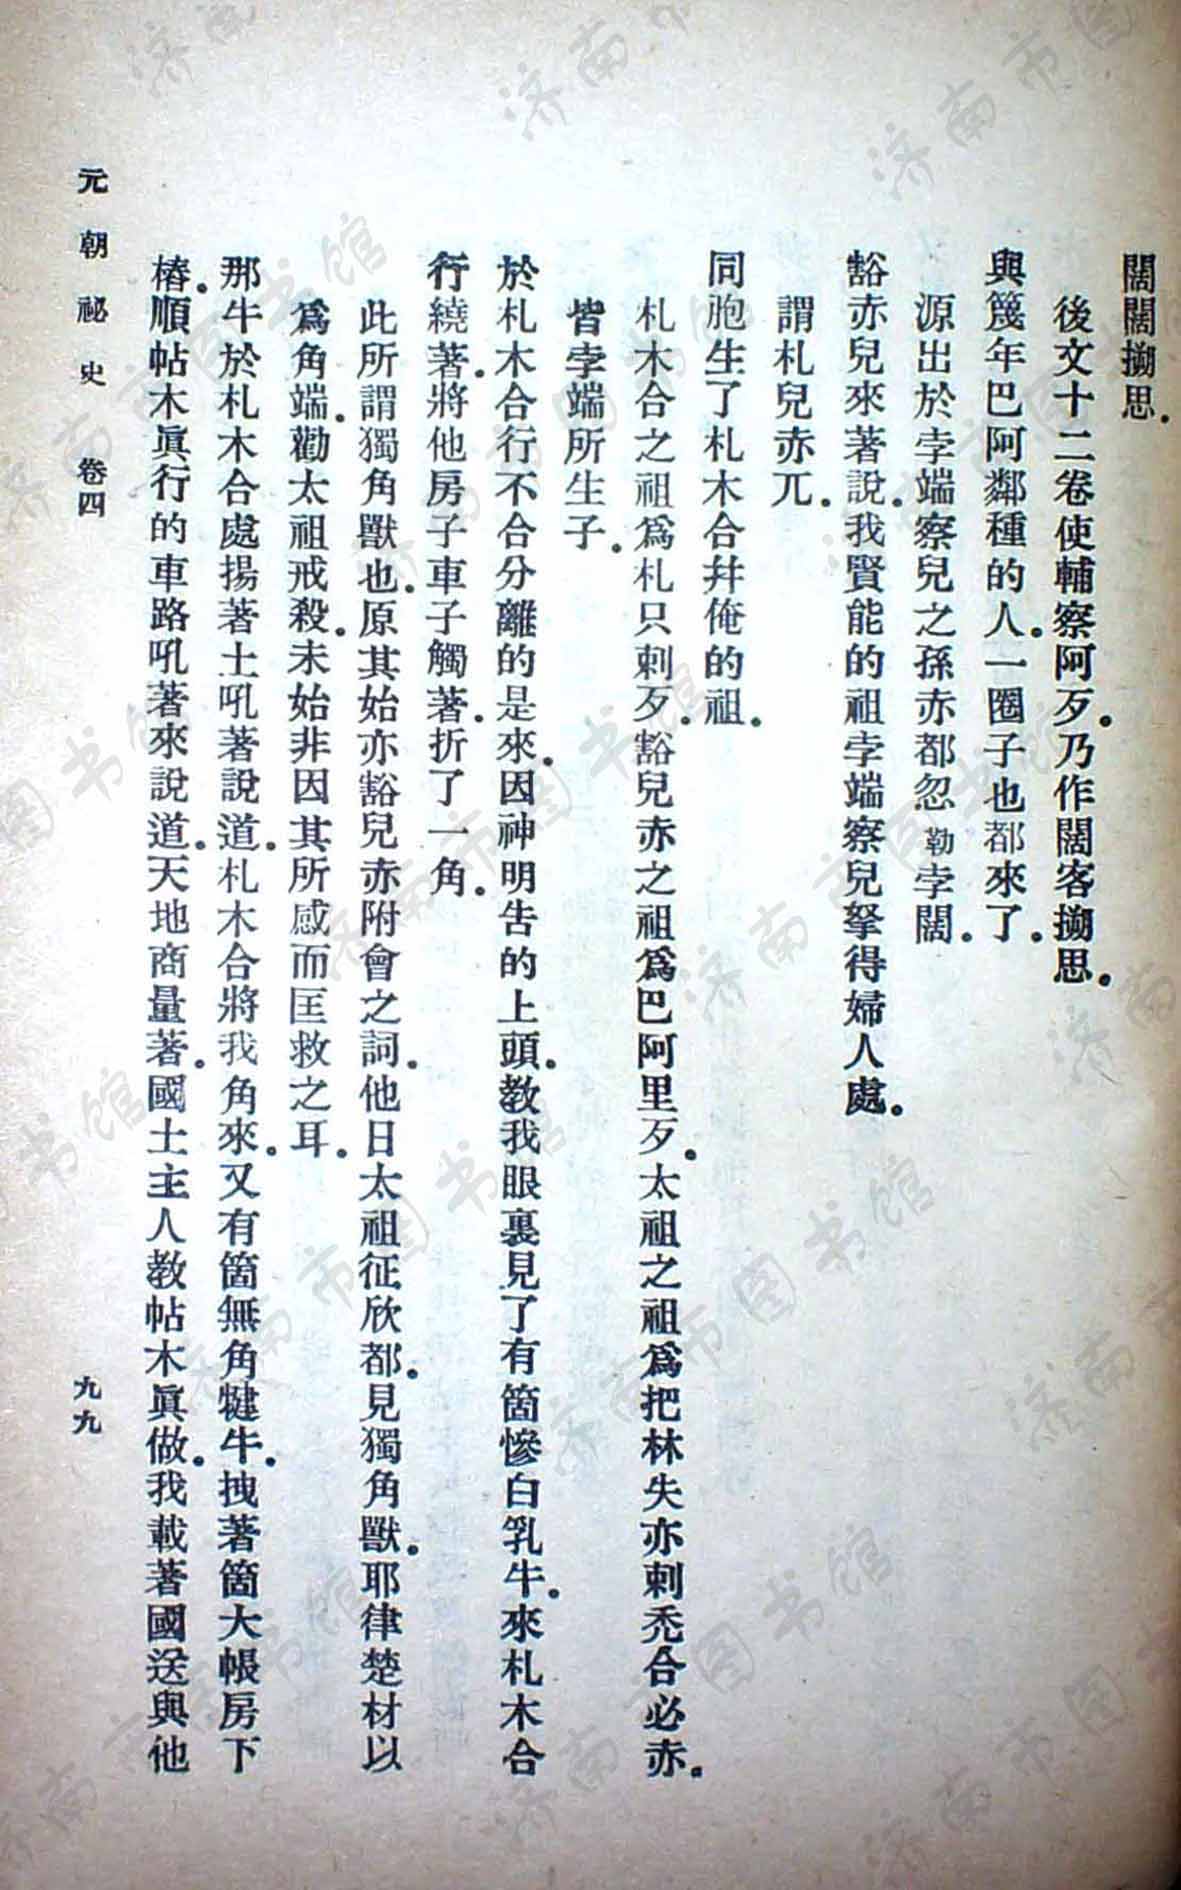 闊闊搠思。
後文十二卷使輔察阿歹。乃作闊客搠思。
與篾年巴阿鄰種的人。一圈子也都來了。
源出於孛端察兒之孫赤都忽勒孛闊。
豁赤兒來著說。我賢能的祖孛端察兒拏得婦人處。
謂札兒赤兀。
同胞生了札木合幷俺的祖。
札木合之祖爲札只剌歹。豁兒赤之祖爲巴阿里歹。太祖之祖爲把林失亦剌禿合必赤。
皆孛端所生子。
於札木合行不合分離的是來。因神明告的上頭。教我眼裏見了有箇慘白乳牛。來札木合
行繞著。將他房子車子觸著。折了一角。
此所謂獨角獸也。原其始亦豁兒赤附會之詞。他日太祖征欣都。見獨角獸。耶律楚材以
爲角端。勸太祖戒殺。未始非因其所感而匡救之耳。
那牛於札木合處揚著土吼著說道。札木合將我角來。又有箇無角犍牛。拽著箇大帳房下
樁。順帖木眞行的車路吼著來說道。天地商量著。國土主人教帖木眞做。我載著國送與他
元朝祕史 卷四
九九
濟南市图书馆